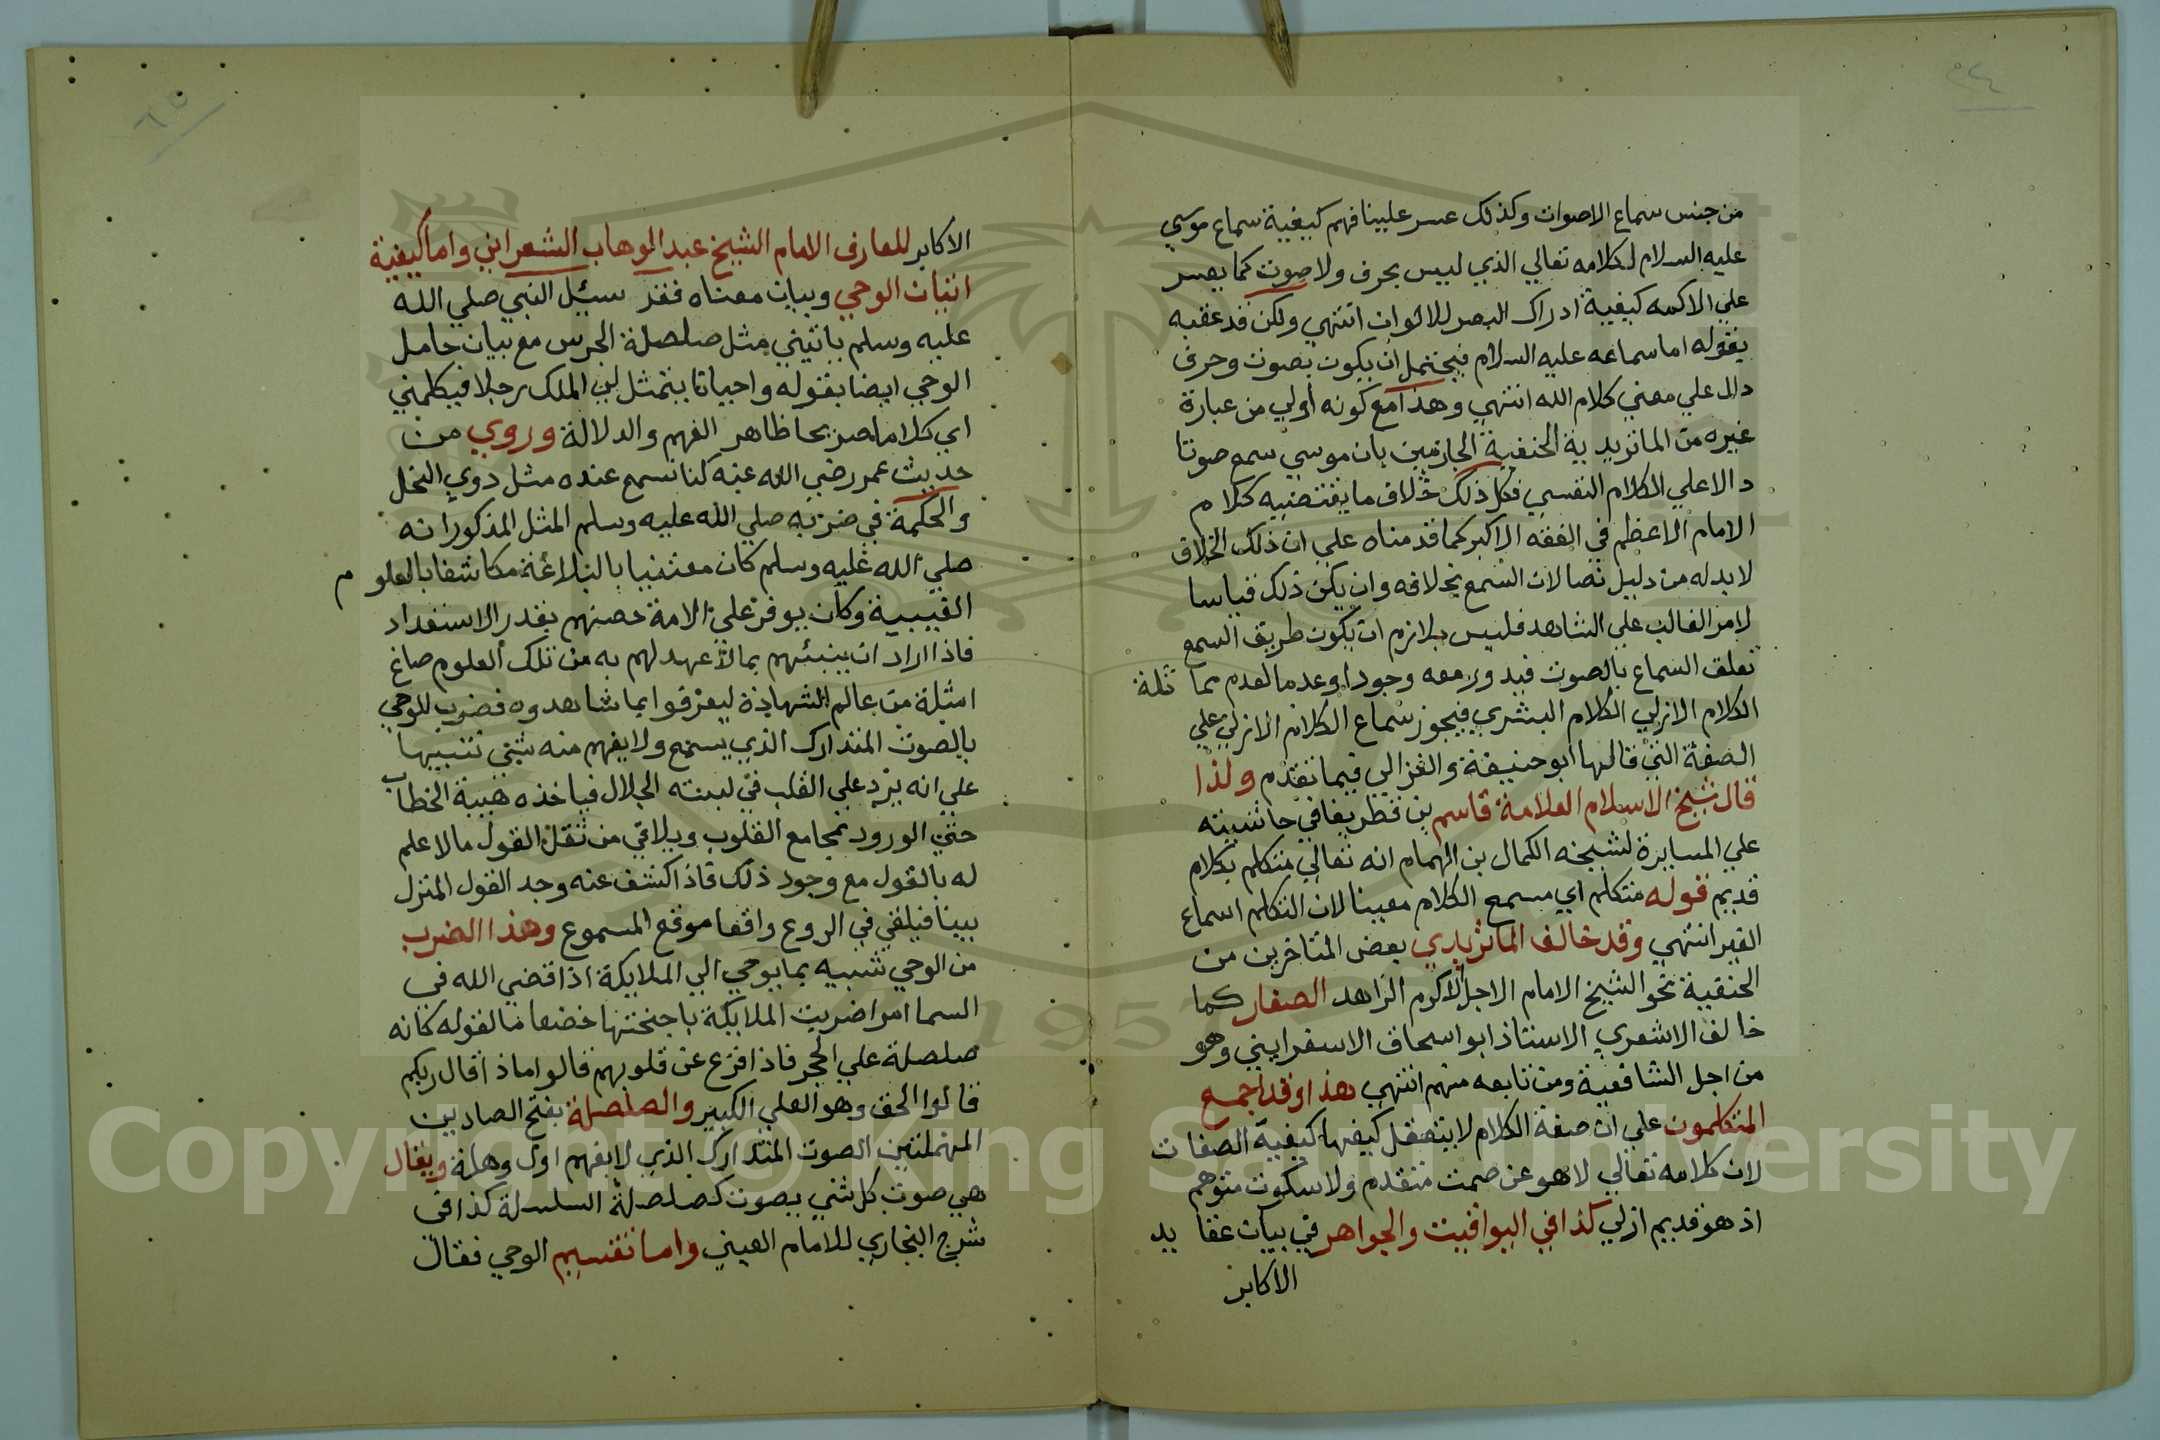 من جنس سماع الاصوات وكذلك عسر علينا فهم كيفية سماع موسي
عليه السلام لكلامه تعالي الذي ليس بحرف ولا صوت كما يعسر
علي الاكمه كيفية ادراك البصر للالوان انتهي ولكن قد عقبه
بقوله اما سماعه عليه السلام فيحتمل ان يكون بصوت وحرف
دال علي معني كلام الله انتهي وهذا مع كونه أولي من عبارة
غيره من الماتريدية الحنفية الجازمين بان موسي سمع صوتا
دالا علي الكلام النفسي فكل ذلك خلاف ما يقتضيه كلام
الامام الاعظم في الفقه الاكبر كما قدمناه علي ان ذلك الخلاف
لابد له من دليل لان السمع بخلافه وان يكن ذلك قياسا
لامر الغالب علي الشاهد فليس بلازم ان يكون طريق السمع
تعلق السماع بالصوت فيدور معه وجودا وعدما لعدم مماثلة
الكلام الازلي الكلام البشري فيجوز سماع الكلام الازلي علي
الصفة التي قالها ابو حنيفة والغزالي فيما تقدم ولذا
قال شيخ الاسلام العلامة قاسم بن قطلوبغا في حاشيته
علي المسايرة لشيخه الكمال بن الهمام انه تعالي متكلم بكلام
قديم قوله متكلم اي مسمع الكلام معينا لان التكلم اسماع
الغير انتهي وقد خالف الماتريدي بعض المتاخرين من
الحنفية نحو الشيخ الامام الاجل الاكرم الزاهد الصفار كما
خالف الاشعري الاستاذ ابو اسحاق الاسفرايني وهو
من اجل الشافعية ومن تابعه منهم انتهي هذا وقد اجمع
المتكلمون علي ان صفة الكلام لا يتعقل كيفها كيفية الصفات
لان كلامه تعالي لا هو عن صمت متقدم ولا سكوت متوهم
اذ هو قديم ازلي كذا في اليواقيت والجواهر في بيان عقايد
الاكابر
الاكابر للعارف الامام الشيخ عبد الوهاب الشعراني واما كيفية
اتيان الوحي وبيان معناه فقد سئل النبي صلي الله
عليه وسلم ياتيني مثل صلصلة الجرس مع بيان حامل
الوحي ايضا بقوله واحيانا يتمثل لي الملك رجلا فيكلمني
اي كلاما صريحا ظاهر الفهم والدلالة وروي من
حديث عمر رضي الله عنه كنا نسمع عنده مثل دوي النحل
والحكمة في ضربه صلي الله عليه وسلم المثل المذكور انه
صلي الله عليه وسلم كان معتنيا بالبلاغة مكاشفا بالعلوم
الغيبية وكان يوفر علي الامة حصتهم بقدر الاستعداد
فاذا اراد ان ينبئهم بما لا عهد لهم به من تلك العلوم صاغ
امثلة من عالم الشهادة ليعرفوا بما شاهدوه فضرب للوحي
بالصوت المتدارك الذي يسمع ولا يفهم منه شئ تنبيها
علي انه يرد علي القلب في لبسته الجلال فياخذه هيبة الخطاب
حتي الورود بمجامع القلوب ويلاقي من ثقل القول مالا علم
له بالقول مع وجود ذلك فاذا كشف عنه وجد القول المنزل
بينا فيلقي في الروع واقعا موقع المسموع وهذا الضرب
من الوحي شبيه بما يوحي الي الملايكة اذا قضي الله في
السما امرا ضربت الملايكة باجنحتها خضعانا لقوله كانه
صلصلة علي الحجر فاذا فزع عن قلوبهم قالوا ماذا قال ربكم
قالوا الحق وهو العلي الكبير والصلصلة بفتح الصادين
المهملتين الصوت المتدارك الذي لا يفهم اول وهلة ويقال
هي صوت كل شئ بصوت كصلصلة السلسلة كذا في
شرح البخاري للامام العيني واما تقسيم الوحي فقال